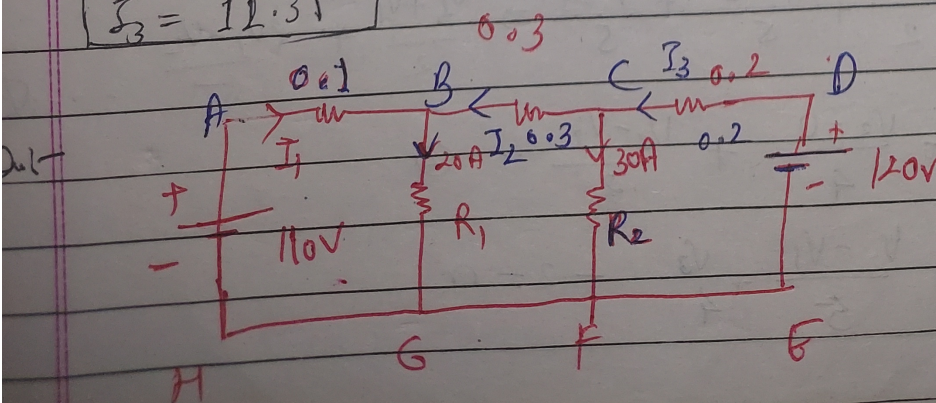 I3 = 12.5A
0.3
A 0.1 B C I3 0.2 D
I1 20A I2 0.3 30A 0.2
+ 110V R1 R2 + 120V
- -
H G F E